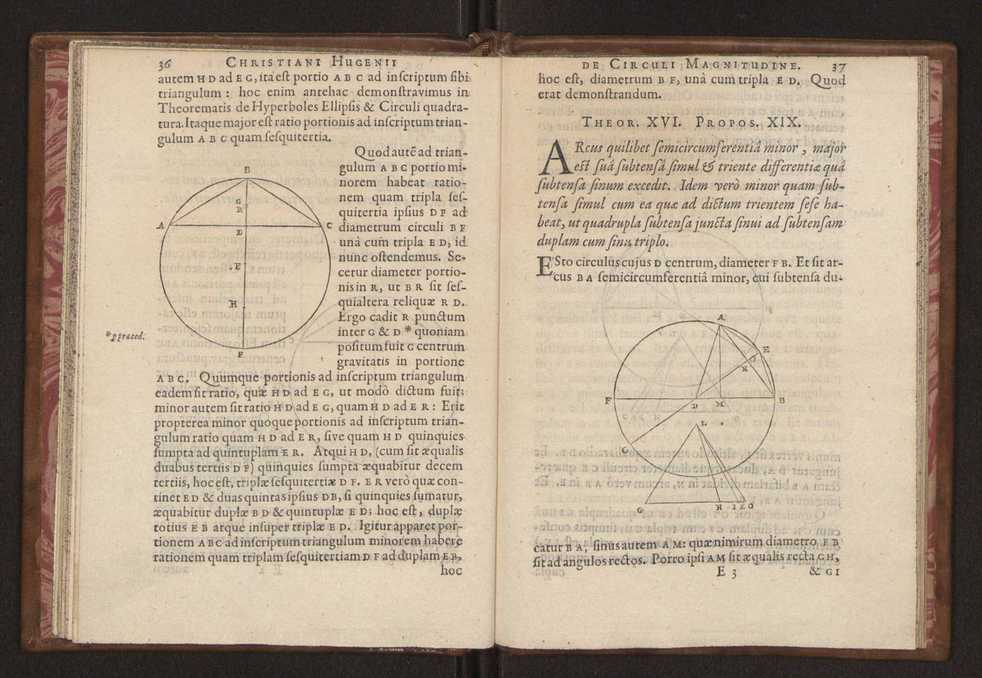 36 CHRISTIANI HUGENII
autem H D ad E G, ita est portio A B C ad inscriptum sibi
triangulum : hoc enim antehac demonstravimus in
Theorematis de Hyperboles Ellipsis & Circuli quadra-
tura. Itaque major est ratio portionis ad inscriptum trian-
gulum A B C quam sesquitertia.
Quod autē ad trian-
gulum A B C portio mi-
norem habeat ratio-
nem quam tripla ses-
quitertia ipsius D F ad
diametrum circuli B F
unà cum tripla E D, id
nunc ostendemus. Se-
cetur diameter portio-
nis in R, ut B R sit ses-
quialtera reliquæ R D.
Ergo cadit R punctum
inter G & D * quoniam
positum fuit G centrum
gravitatis in portione
* p præced.
B
G
R
A
D
C
E
H
F
A B C. Quumque portionis ad inscriptum triangulum
eadem sit ratio, quæ H D ad E G, ut modò dictum fuit;
minor autem sit ratio H D ad E G, quam H D ad E R : Erit
propterea minor quoque portionis ad inscriptum trian-
gulum ratio quam H D ad E R, sive quam H D quinquies
sumpta ad quintuplam E R. Atqui H D, (cum sit æqualis
duabus tertiis D F) quinquies sumpta æquabitur decem
tertiis, hoc est, triplæ sesquitertiæ D F. E R verò quæ con-
tinet E D & duas quintas ipsius D B, si quinquies sumatur,
æquabitur duplæ B D & quintuplæ E D; hoc est, duplæ
totius E B atque insuper triplæ E D. Igitur apparet por-
tionem A B C ad inscriptum triangulum minorem habere
rationem quam triplam sesquitertiam D F ad duplam E B,
hoc
DE CIRCULI MAGNITUDINE. 37
hoc est, diametrum B F, unà cum tripla E D. Quod
erat demonstrandum.
THEOR. XVI. PROPOS. XIX.
ARcus quilibet semicircumferentiâ minor, major
est suâ subtensâ simul & triente differentiæ quâ
subtensa sinum excedit. Idem verò minor quam sub-
tensa simul cum ea quæ ad dictum trientem sese ha-
beat, ut quadrupla subtensa juncta sinui ad subtensam
duplam cum sinu triplo.
ESto circulus cujus D centrum, diameter F B. Et sit ar-
cus B A semicircumferentiâ minor, cui subtensa du-
A
E
N
F
D
M
B
C
L
G
H I K O
catur B A, sinus autem A M: quæ nimirum diametro F B
sit ad angulos rectos. Porro ipsi A M sit æqualis recta G H,
E 3 & G I